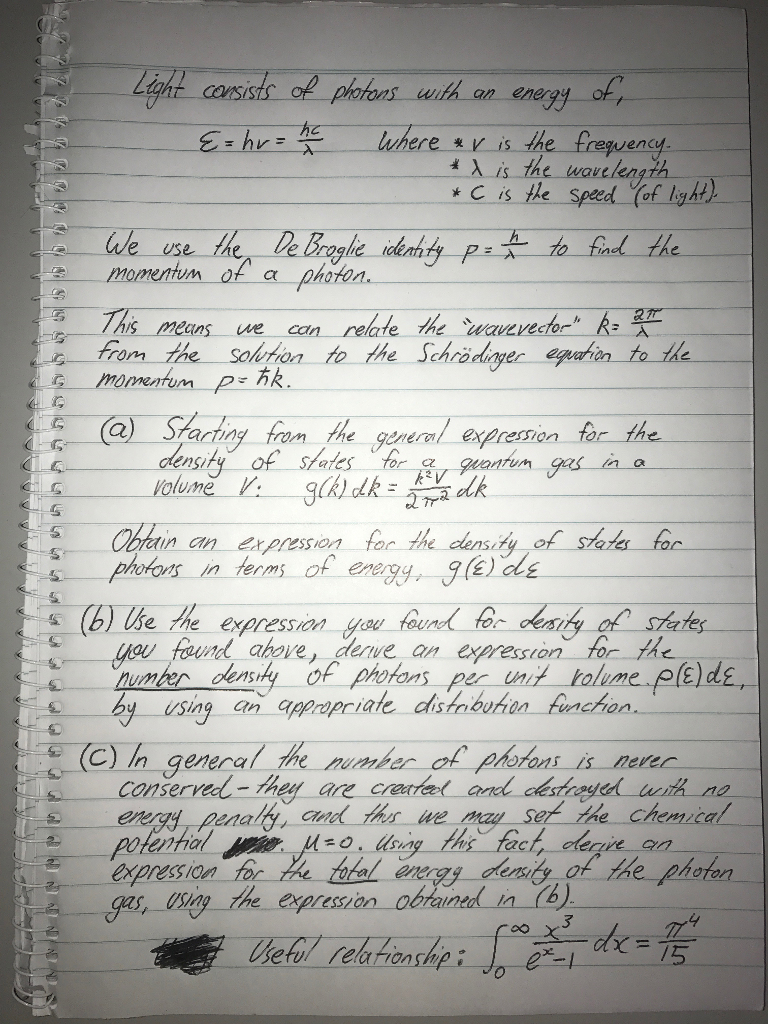 Light consists of photons with an energy of,
ε = hν = hc/λ where * ν is the frequency.
* λ is the wavelength
* C is the speed (of light).
We use the De Broglie identity p = h/λ to find the
momentum of a photon.
This means we can relate the "wavevector" k = 2π/λ
from the solution to the Schrödinger equation to the
momentum p = ħk.
(a) Starting from the general expression for the
density of states for a quantum gas in a
volume V: g(k) dk = k²V/2π² dk
Obtain an expression for the density of states for
photons in terms of energy, g(ε) dε
(b) Use the expression you found for density of states
you found above, derive an expression for the
number density of photons per unit volume. ρ(ε) dε,
by using an appropriate distribution function.
(C) In general the number of photons is never
conserved - they are created and destroyed with no
energy penalty, and thus we may set the chemical
potential . μ = 0. Using this fact, derive an
expression for the total energy density of the photon
gas, using the expression obtained in (b).
Useful relationship: ∫₀^∞ x³/(eˣ-1) dx = π⁴/15